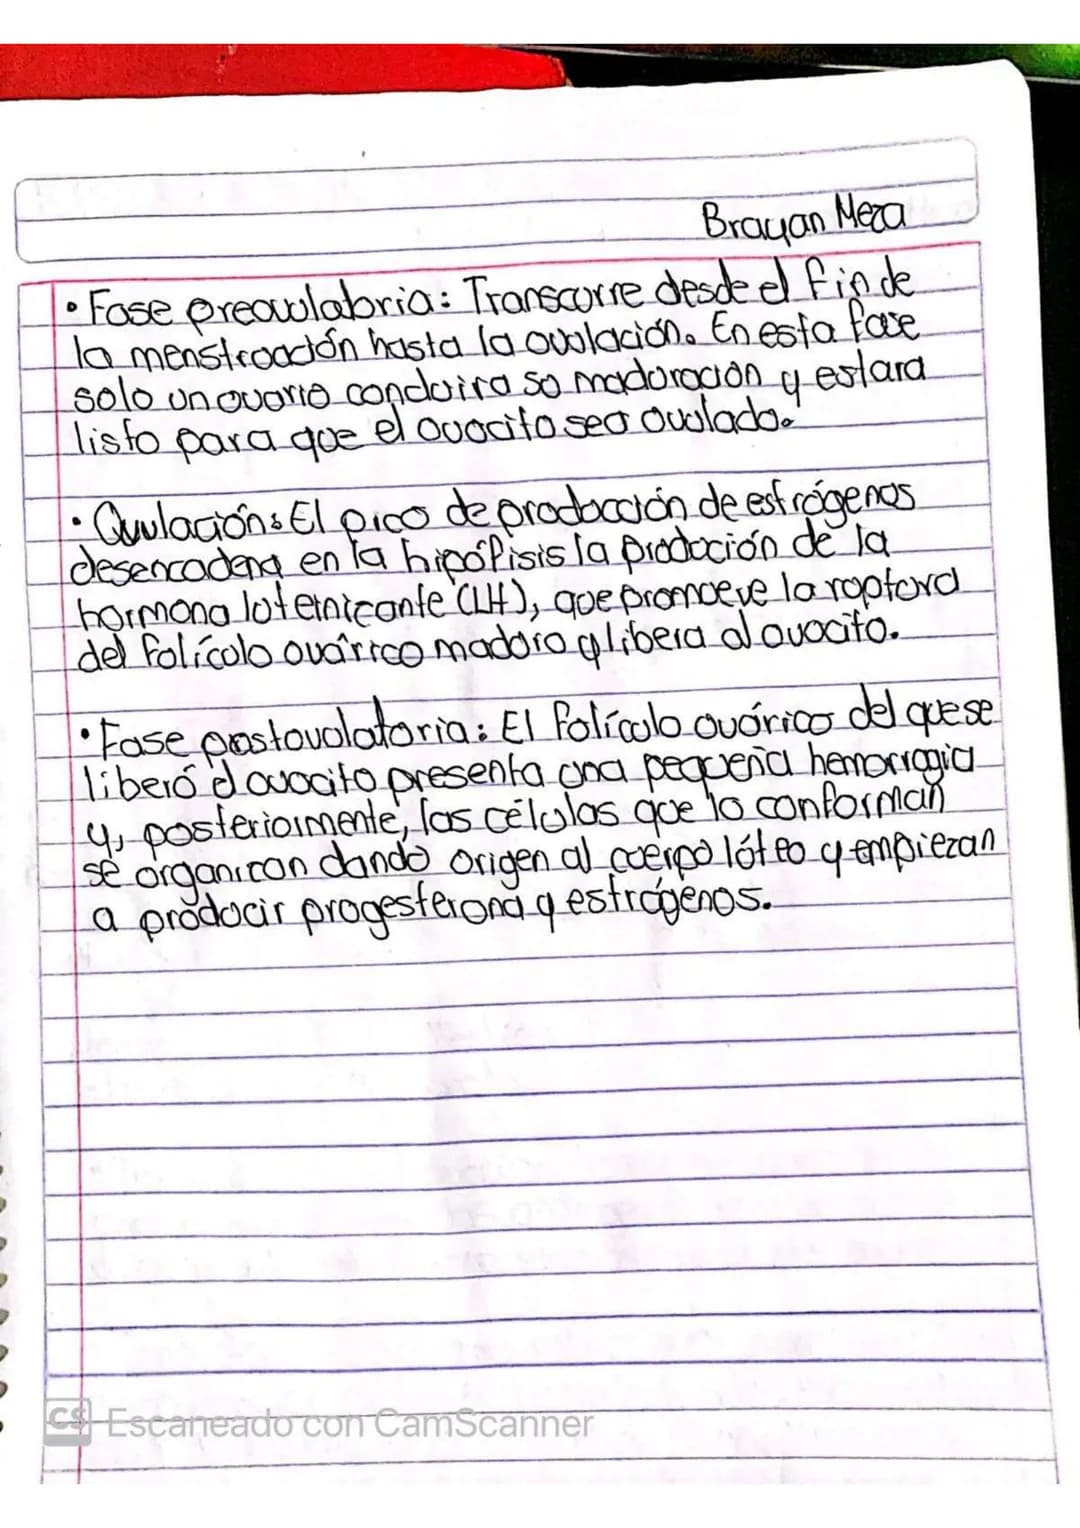 Brayan Meza
• Fase preovulatoria: Transcurre desde el fin de
la menstruación hasta la ovulación. En esta fase
solo un ovario conduira su maduración y estara
listo para que el ovocito sea ovulado.
• Ovulación: El pico de producción de estrógenos
desencadena en la hipófisis la produción de la
hormona luteinicante (LH), que promueve la ruptura
del folículo ovárico maduro y libera al ovocito.
• Fase postovulatoria: El folículo ovárico del que se
liberó el ovocito presenta una pequeña hemorragia
y, posteriormente, las células que lo conforman
se organizan dando origen al cuerpo lúteo y empiezan
a producir progesterona y estrógenos.
CS Escaneado con CamScanner